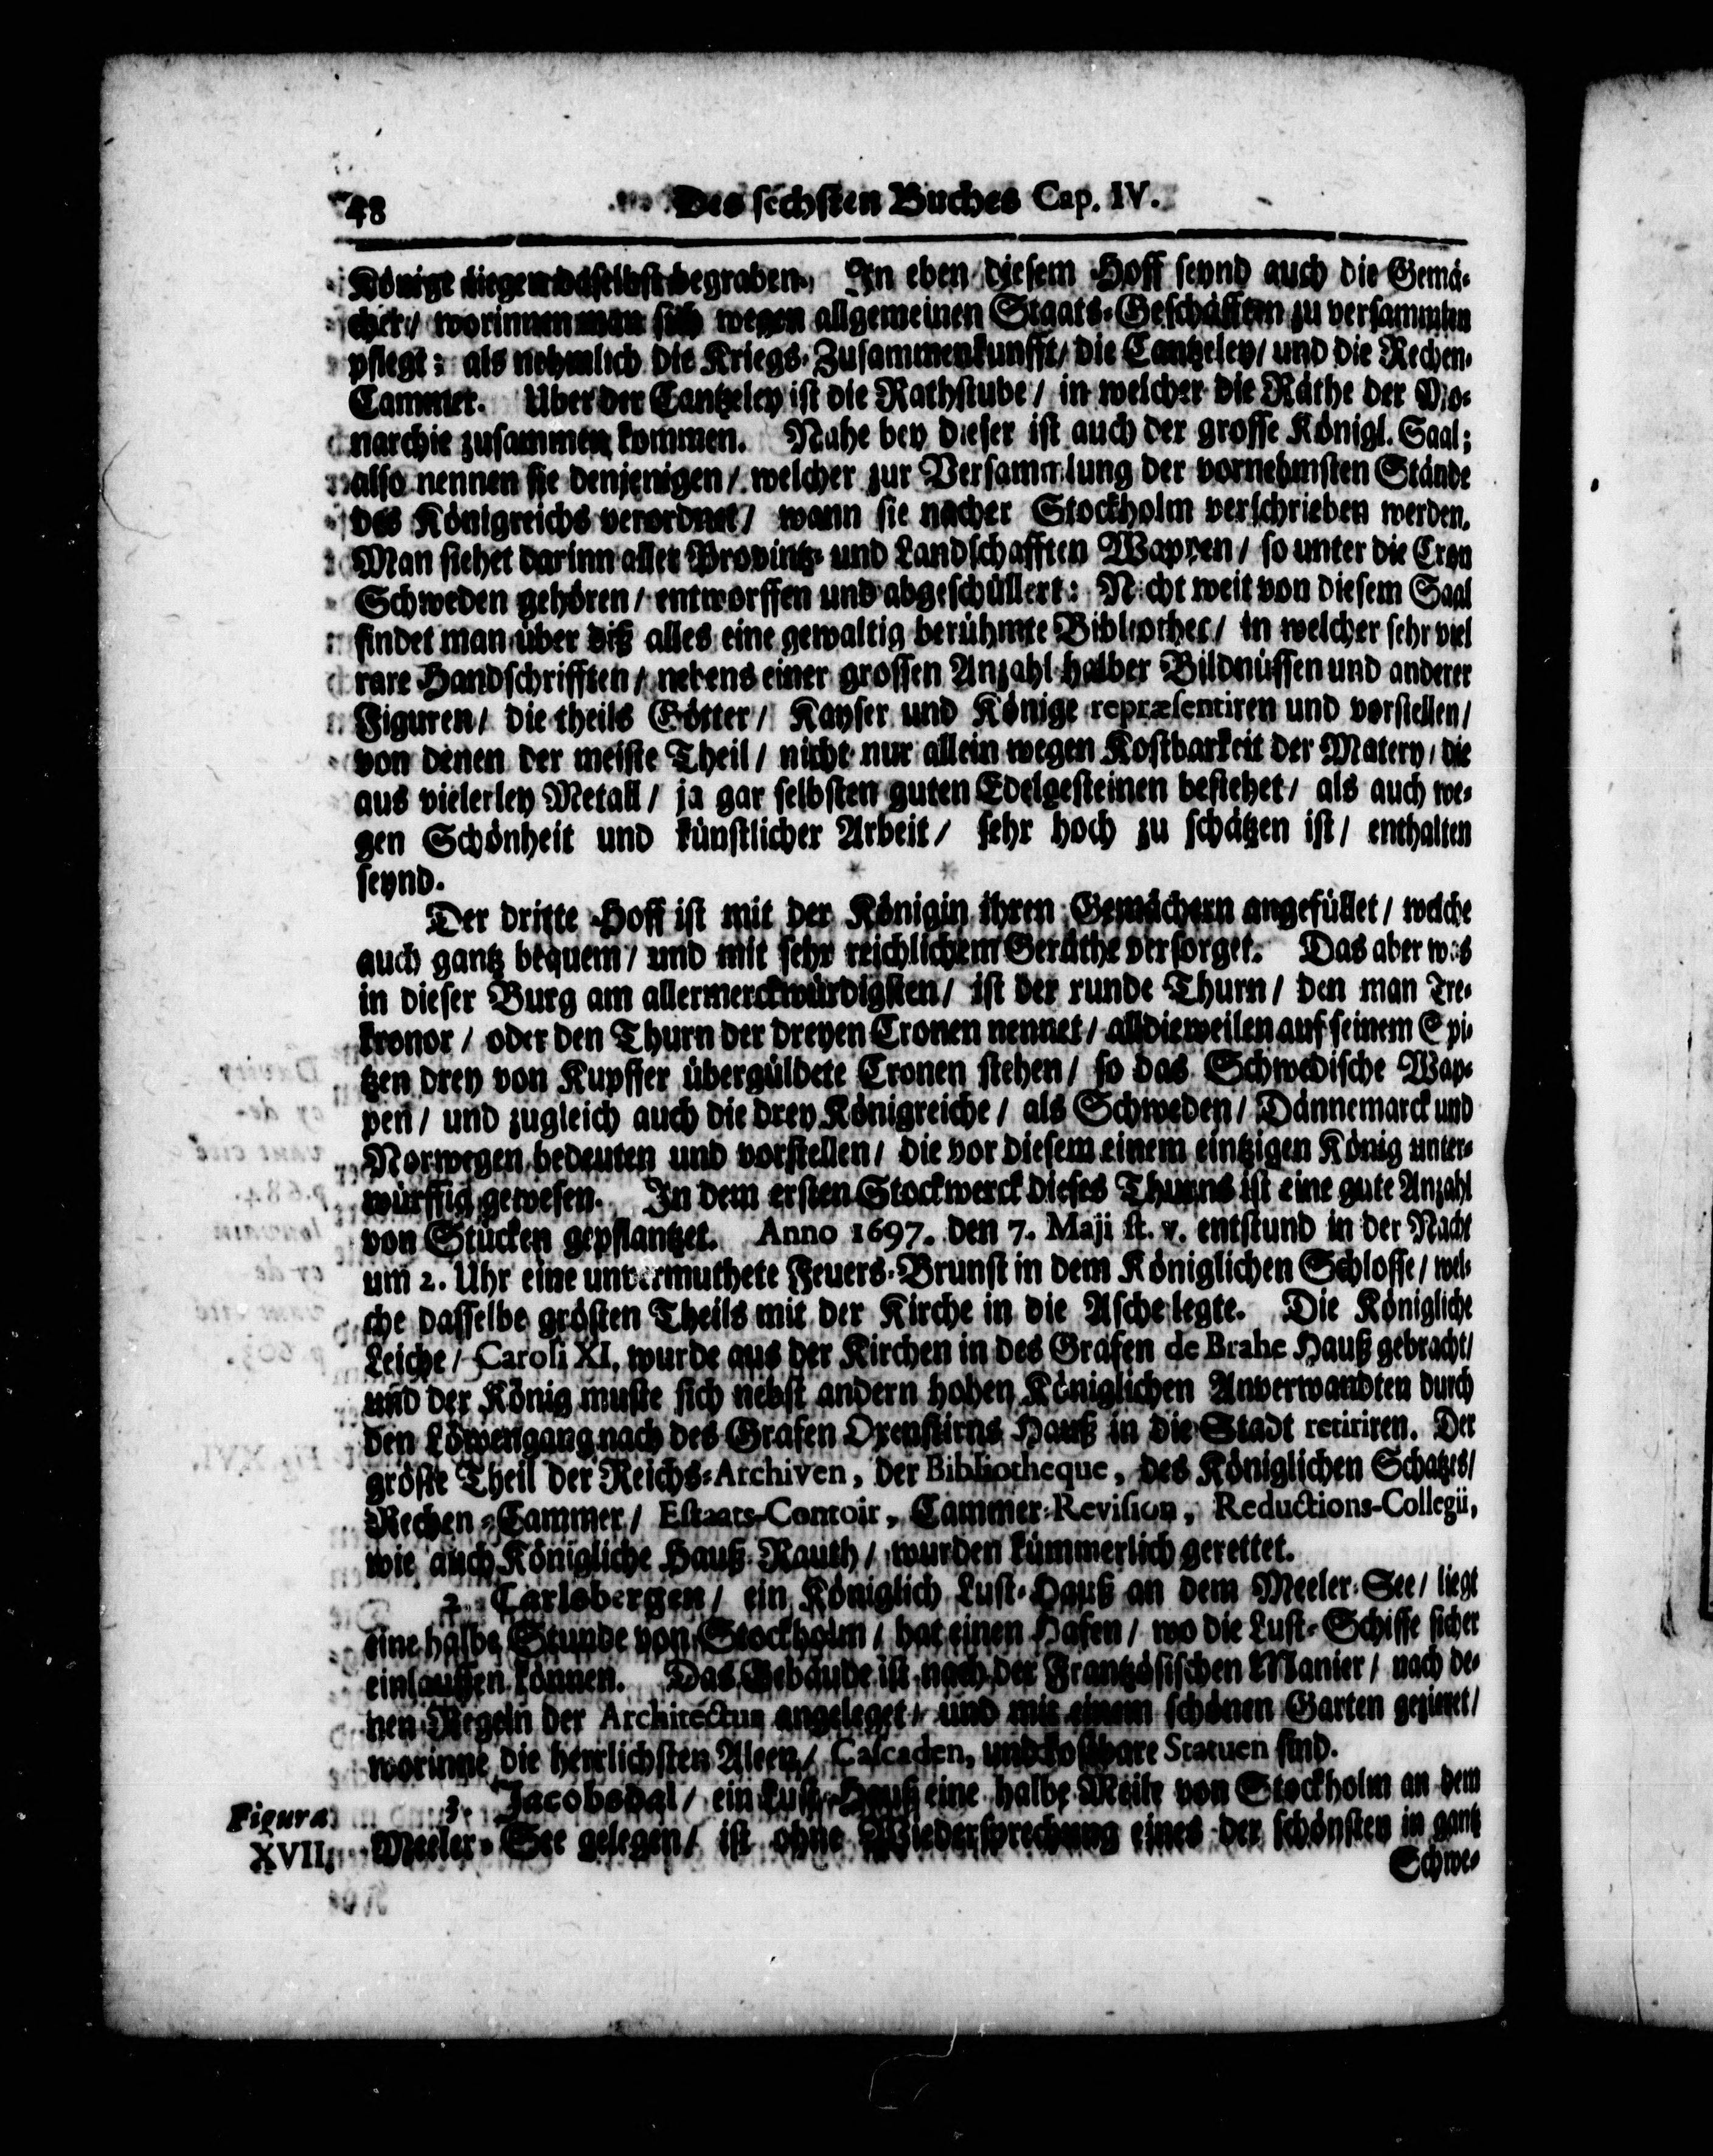 48 Des sechsten Buches Cap. IV.
Könige liegen daselbst begraben. In eben diesem Hoff seynd auch die Gemä-
cher/ worinnen man sich wegen allgemeinen Staats-Geschäfften zu versammlen
pflegt: als nehmlich die Kriegs-Zusammenkunfft/ die Cantzeley/ und die Rechen-
Cammer. Uber der Cantzeley ist die Rathstube/ in welcher die Räthe der Mo-
narchie zusammen kommen. Nahe bey dieser ist auch der grosse Königl. Saal;
also nennen sie denjenigen/ welcher zur Versammlung der vornehmsten Stände
des Königreichs verordnet/ wann sie nacher Stockholm verschrieben werden.
Man siehet darinn aller Provintz- und Landschafften Wappen/ so unter die Cron
Schweden gehören/ entworffen und abgeschüllert: Nicht weit von diesem Saal
findet man über diß alles eine gewaltig berühmte Bibliothec/ in welcher sehr viel
rare Handschrifften/ nebens einer grossen Anzahl halber Bildnüssen und anderer
Figuren/ die theils Götter/ Kayser und Könige repræsentiren und vorstellen/
von denen der meiste Theil/ nicht nur allein wegen Kostbarkeit der Matery/ die
aus vielerley Metall/ ja gar selbsten guten Edelgesteinen bestehet/ als auch we-
gen Schönheit und künstlicher Arbeit/ sehr hoch zu schätzen ist/ enthalten
seynd.
Der dritte Hoff ist mit der Königin ihren Gemächern angefüllet/ welche
auch gantz bequem/ und mit sehr reichlichem Geräthe versorget. Das aber was
in dieser Burg am allermerckwürdigsten/ ist der runde Thurn/ den man Tre-
kronor/ oder den Thurn der dreyen Cronen nennet/ alldieweilen auf seinem Spi-
tzen drey von Kupffer übergüldete Cronen stehen/ so das Schwedische Wap-
pen/ und zugleich auch die drey Königreiche/ als Schweden/ Dännemarck und
Norwegen bedeuten und vorstellen/ die vor diesem einem eintzigen König unter-
würffig gewesen. In dem ersten Stockwerck dieses Thurns ist eine gute Anzahl
von Stücken gepflantzet. Anno 1697. den 7. Maji st. v. entstund in der Nacht
um 2. Uhr eine unvermuthete Feuers-Brunst in dem Königlichen Schlosse/ wel-
che dasselbe grösten Theils mit der Kirche in die Asche legte. Die Königliche
Leiche/ Caroli XI. wurde aus der Kirchen in des Grafen de Brahe Hauß gebracht/
und der König muste sich nebst andern hohen Königlichen Anverwandten durch
den Löwengang nach des Grafen Oxenstirns Hauß in die Stadt retiriren. Der
gröste Theil der Reichs-Archiven, der Bibliotheque, des Königlichen Schatzes/
Rechen-Cammer/ Estaats-Contoir, Cammer-Revision, Reductions-Collegii,
wie auch Königliche Hauß-Rauth/ wurden kümmerlich gerettet.
2. Carlsbergen/ ein Königlich Lust-Hauß an dem Meeler-See/ liegt
eine halbe Stunde von Stockholm/ hat einen Hafen/ wo die Lust-Schiffe sicher
einlauffen können. Das Gebäude ist nach der Frantzösischen Manier/ nach de-
nen Regeln der Architectur angeleget/ und mit einem schönen Garten gezieret/
worinne die herrlichsten Aleen/ Cascaden, und kostbare Statuen sind.
3. Jacobsdal/ ein Lust-Hauß eine halbe Meile von Stockholm an dem
Figura
XVII. Meeler-See gelegen/ ist ohne Wiedersprechung eines der schönsten in gantz
Schwe-